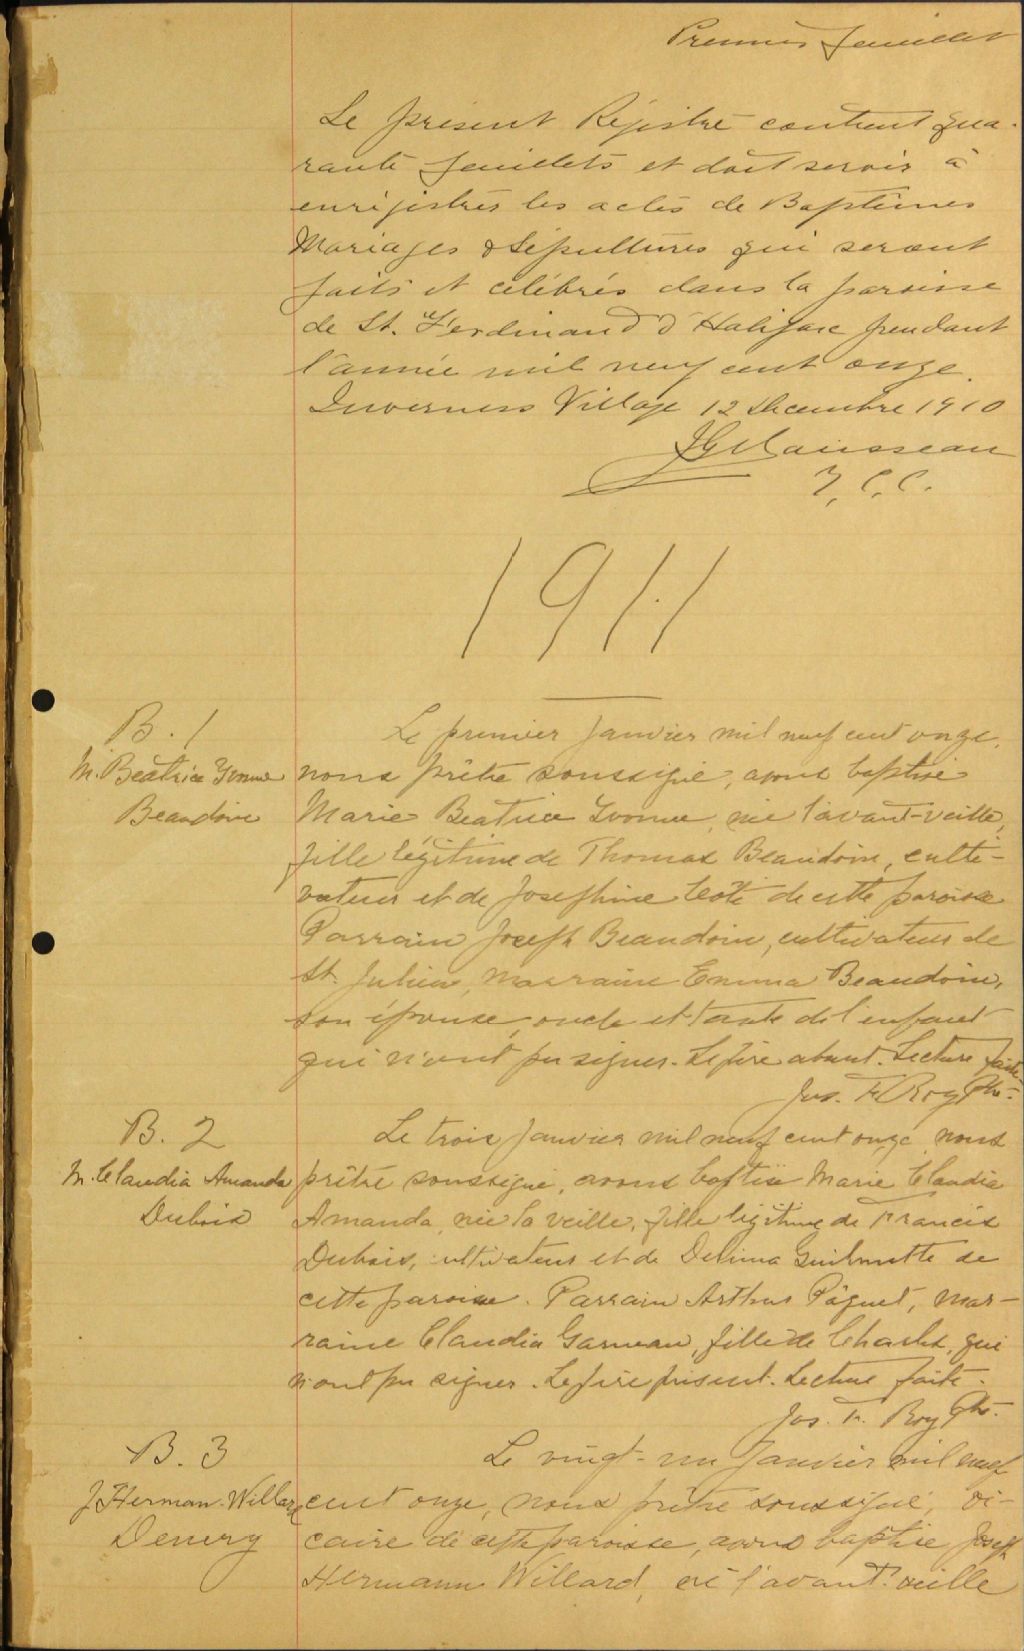 Premier feuillet
Le présent Régistre contient qua-
rante feuillets et doit servir à
enrégistrer les actes de Baptêmes
Mariages & Sépultures qui seront
faits et célébrés dans la paroisse
de St. Ferdinand d'Halifax pendant
l'année mil neuf cent onze.
Inverness Village 12 Décembre 1910
1911
B. 1
M. Beatrice Yvonne
Beaudoin
Le premier Janvier mil neuf cent onze,
nous prêtre soussigné, avons baptisé
Marie Beatrice Yvonne, née l'avant-veille,
fille légitime de Thomas Beaudoin, culti-
vateur et de Josephine de cette paroisse
Parrain Joseph Beaudoin, cultivateur de
St. Julien, marraine Emma Beaudoin,
son épouse, oncle et tante de l'enfant
qui n'ont pu signer. Le père absent. Lecture faite
Jos. F. Roy Ptre.
B. 2
M. Claudia Amanda
Dubois
Le trois Janvier mil neuf cent onze, nous
prêtre soussigné, avons baptisé Marie Claudia
Amanda, née la veille, fille légitime de Francis
Dubois, cultivateur et de Delima Guilmette de
cette paroisse. Parrain Arthur Pâquet, mar-
raine Claudia Garneau, fille de Charles, qui
n'ont pu signer. Le père présent. Lecture faite.
Jos. F. Roy Ptre.
B. 3
J Herman-Willard
Denery
Le vingt-un Janvier mil neuf
cent onze, nous prêtre soussigné, vi-
caire de cette paroisse, avons baptisé Joseph
Hermann Willard, né l'avant-veille